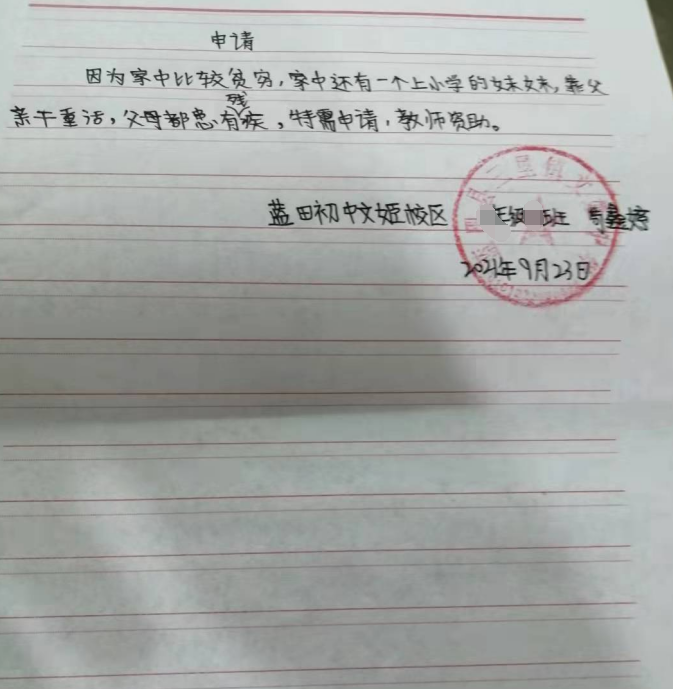 申请
因为家中比较贫穷，家中还有一个上小学的妹妹，靠父
亲干重活，父母都患有残疾，特需申请，教师资助。
蓝田初中文姬校区 年级 班 鑫婷
2021年9月23日